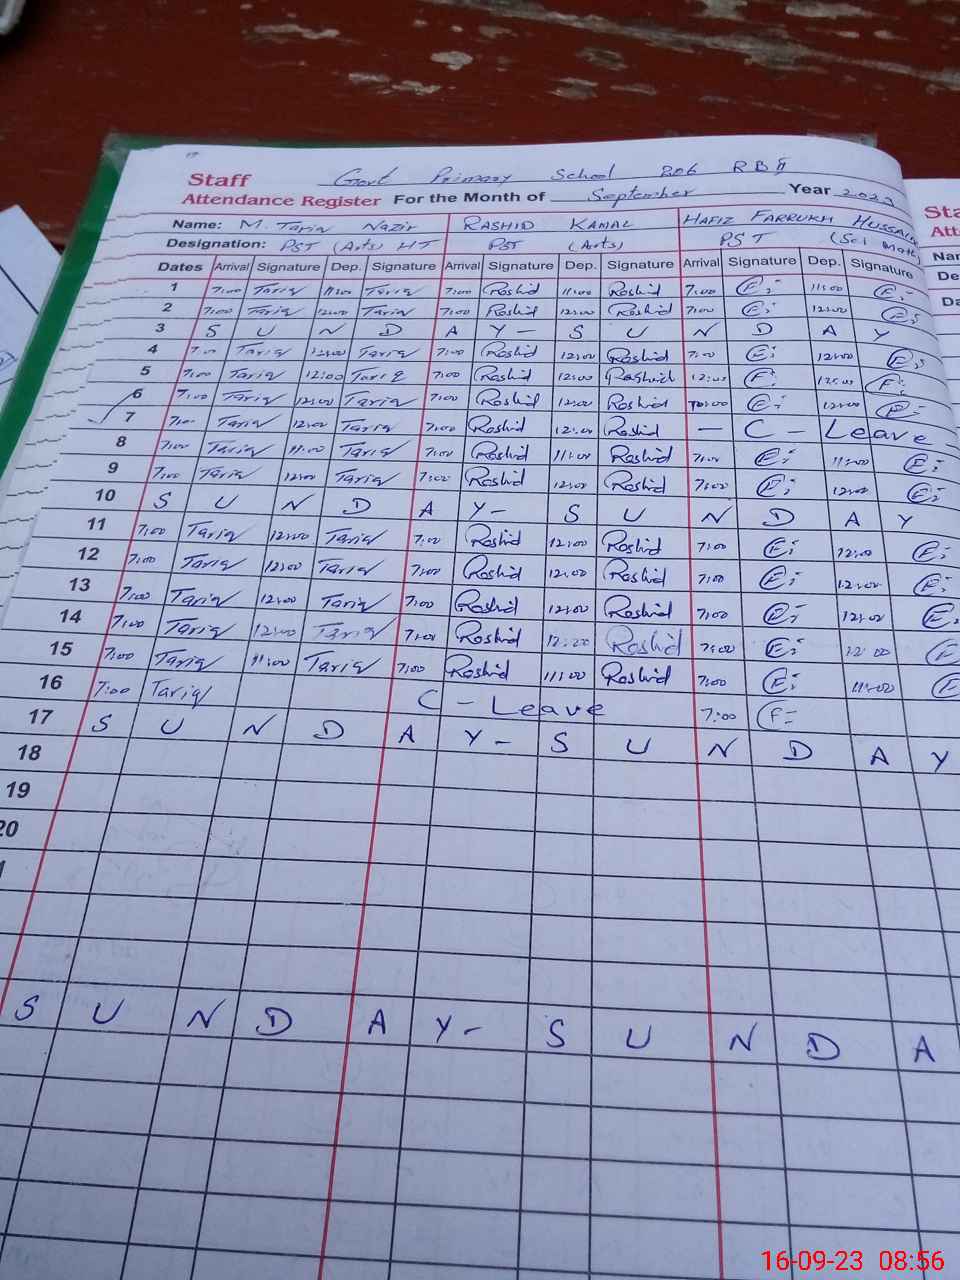 Staff Govt Primary School 206 RB II
Attendance Register For the Month of September Year 2023
Name: M. Tariq Nazir RASHID KAMAL HAFIZ FARRUKH HUSSAIN
Designation: PST (Arts) HT PST (Arts) PST (Sci Math)
Dates Arrival Signature Dep. Signature Arrival Signature Dep. Signature Arrival Signature Dep. Signature
1 7:00 Tariq 11:00 Tariq 7:00 Rashid 11:00 Rashid 7:00 11:00
2 7:00 Tariq 12:00 Tariq 7:00 Rashid 12:00 Rashid 7:00 12:00
3 S U N D A Y - S U N D A Y
4 7:00 Tariq 12:00 Tariq 7:00 Rashid 12:00 Rashid 7:00 12:00
5 7:00 Tariq 12:00 Tariq 7:00 Rashid 12:00 Rashid 12:00 12:00
6 7:00 Tariq 12:00 Tariq 7:00 Rashid 12:00 Rashid 12:00
7 7:00 Tariq 12:00 Tariq 7:00 Rashid 12:00 Rashid - C - Leave
8 7:00 Tariq 11:00 Tariq 7:00 Rashid 11:00 Rashid 7:00 11:00
9 7:00 Tariq 12:00 Tariq 7:00 Rashid 12:00 Rashid 7:00 12:00
10 S U N D A Y - S U N D A Y
11 7:00 Tariq 12:00 Tariq 7:00 Rashid 12:00 Rashid 7:00 12:00
12 7:00 Tariq 12:00 Tariq 7:00 Rashid 12:00 Rashid 7:00 12:00
13 7:00 Tariq 12:00 Tariq 7:00 Rashid 12:00 Rashid 7:00 12:00
14 7:00 Tariq 12:00 Tariq 7:00 Rashid 12:00 Rashid 7:00 12:00
15 7:00 Tariq 11:00 Tariq 7:00 Rashid 11:00 Rashid 7:00 11:00
16 7:00 Tariq C - Leave 7:00
17 S U N D A Y - S U N D A Y
18
19
20
S U N D A Y - S U N D A
16-09-23 08:56